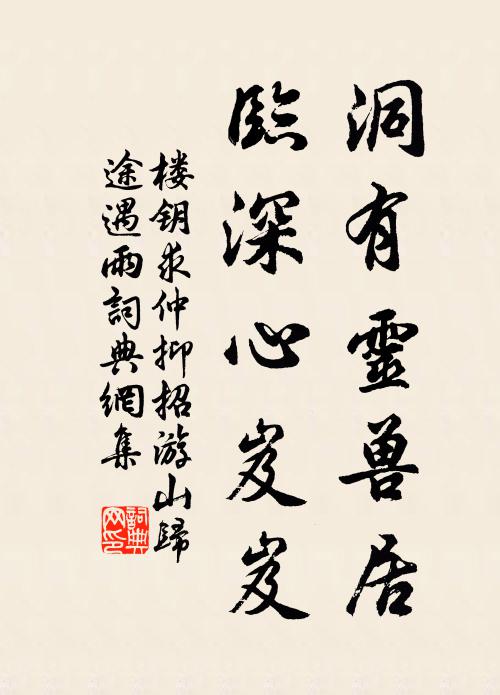 洞有靈兽居
臨深心岌岌
楼钥求仲抑招游山歸
途遇雨詞典網集
詞典
网印